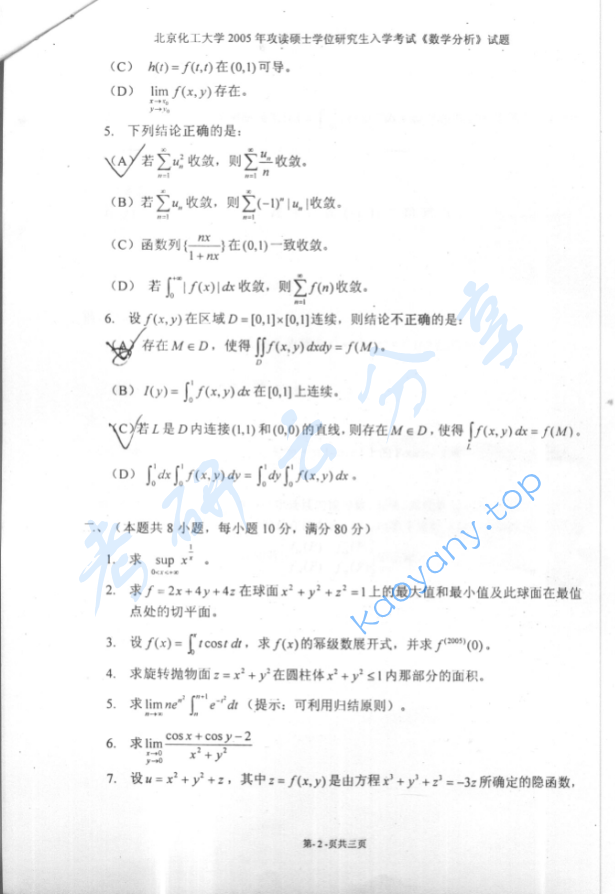 北京化工大学 2005 年攻读硕士学位研究生入学考试《数学分析》试题
(C) h(t) = f(t,t) 在 (0,1) 可导。
(D) lim_{x→x₀, y→y₀} f(x,y) 存在。
5. 下列结论正确的是:
(A) 若 ∑_{n=1}^{∞} uₙ² 收敛, 则 ∑_{n=1}^{∞} uₙ/n 收敛。
(B) 若 ∑_{n=1}^{∞} uₙ 收敛, 则 ∑_{n=1}^{∞} (-1)ⁿ |uₙ| 收敛。
(C) 函数列 {nx/(1+nx)} 在 (0,1) 一致收敛。
(D) 若 ∫₀^{+∞} |f(x)| dx 收敛, 则 ∑_{n=1}^{∞} f(n) 收敛。
6. 设 f(x,y) 在区域 D = [0,1]×[0,1] 连续, 则结论不正确的是:
(A) 存在 M ∈ D, 使得 ∬_D f(x,y) dxdy = f(M)。
(B) I(y) = ∫₀¹ f(x,y) dx 在 [0,1] 上连续。
(C) 若 L 是 D 内连接 (1,1) 和 (0,0) 的直线, 则存在 M ∈ D, 使得 ∫_L f(x,y) dx = f(M)。
(D) ∫₀¹ dx ∫₀¹ f(x,y) dy = ∫₀¹ dy ∫₀¹ f(x,y) dx。
二、(本题共 8 小题, 每小题 10 分, 满分 80 分)
1. 求 sup_{0<x<+∞} x^{1/x}。
2. 求 f = 2x + 4y + 4z 在球面 x² + y² + z² = 1 上的最大值和最小值及此球面在最值
点处的切平面。
3. 设 f(x) = ∫₀ˣ t cos t dt, 求 f(x) 的幂级数展开式, 并求 f^{(2005)}(0)。
4. 求旋转抛物面 z = x² + y² 在圆柱体 x² + y² ≤ 1 内那部分的面积。
5. 求 lim_{n→∞} n e^{n²} ∫ₙ^{n+1} e^{-t²} dt (提示: 可利用归结原则)。
6. 求 lim_{x→0, y→0} (cos x + cos y - 2)/(x² + y²)
7. 设 u = x² + y² + z, 其中 z = f(x,y) 是由方程 x³ + y³ + z³ = -3z 所确定的隐函数,
第- 2 -页共三页
考研云分享
kaoyany.top